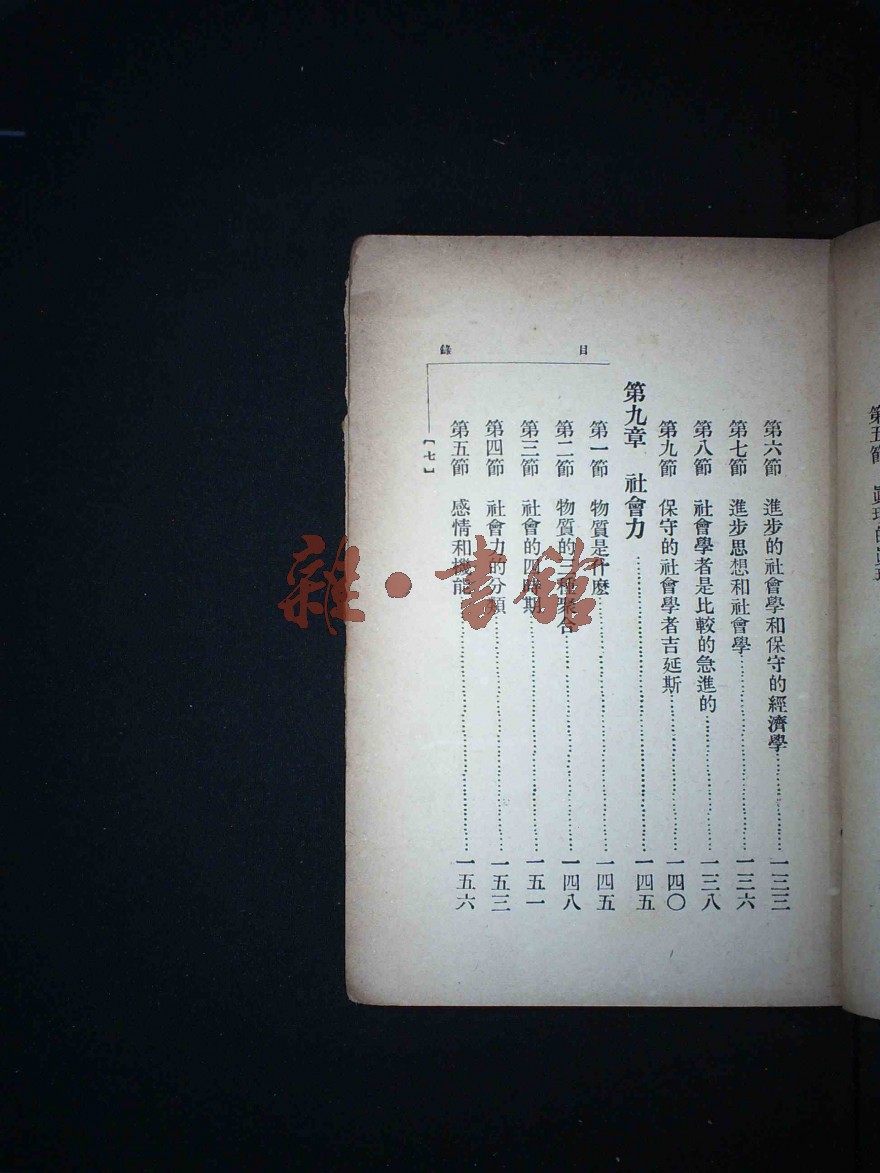 第六節　進步的社會學和保守的經濟學……………一三三
第七節　進步思想和社會學……………一三六
第八節　社會學者是比較的急進的……………一三八
第九節　保守的社會學者吉延斯……………一四〇
第九章　社會力……………一四五
第一節　物質是什麽……………一四五
第二節　物質的三種聚合……………一四八
第三節　社會的四時期……………一五一
第四節　社會力的分類……………一五三
第五節　感情和機能……………一五六
目錄
【七】
雜·書館